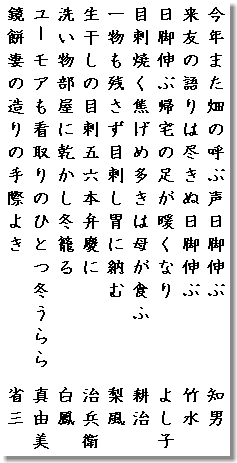 今年また畑の呼ぶ声日脚伸ぶ 知男
来友の語りは尽きぬ日脚伸ぶ 竹水
日脚伸ぶ帰宅の足が暖くなり よし子
目刺焼く焦げめ多きは母が食ふ 耕治
一物も残さず目刺し胃に納む 梨風
生干しの目刺五六本弁慶に 治兵衛
洗い物部屋に乾かし冬籠る 白鳳
ユーモアも看取りのひとつ冬うらら 真由美
鏡餅妻の造りの手際よき 省三